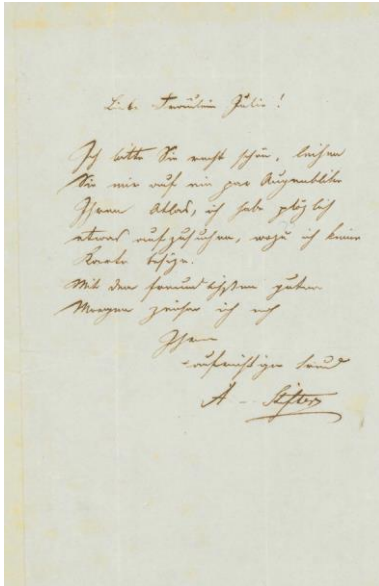 Liebe Fräulein Julie!
Ich bitte Sie recht schön, leihen
Sie mir auf ein par Augenblike
Ihren Atlas, ich habe plözlich
etwas aufzusuchen, wozu ich keine
Karte besize.
Mit dem freundlichsten guten
Morgen zeichne ich
Ihr
aufrichtiger Freund
A Stifter